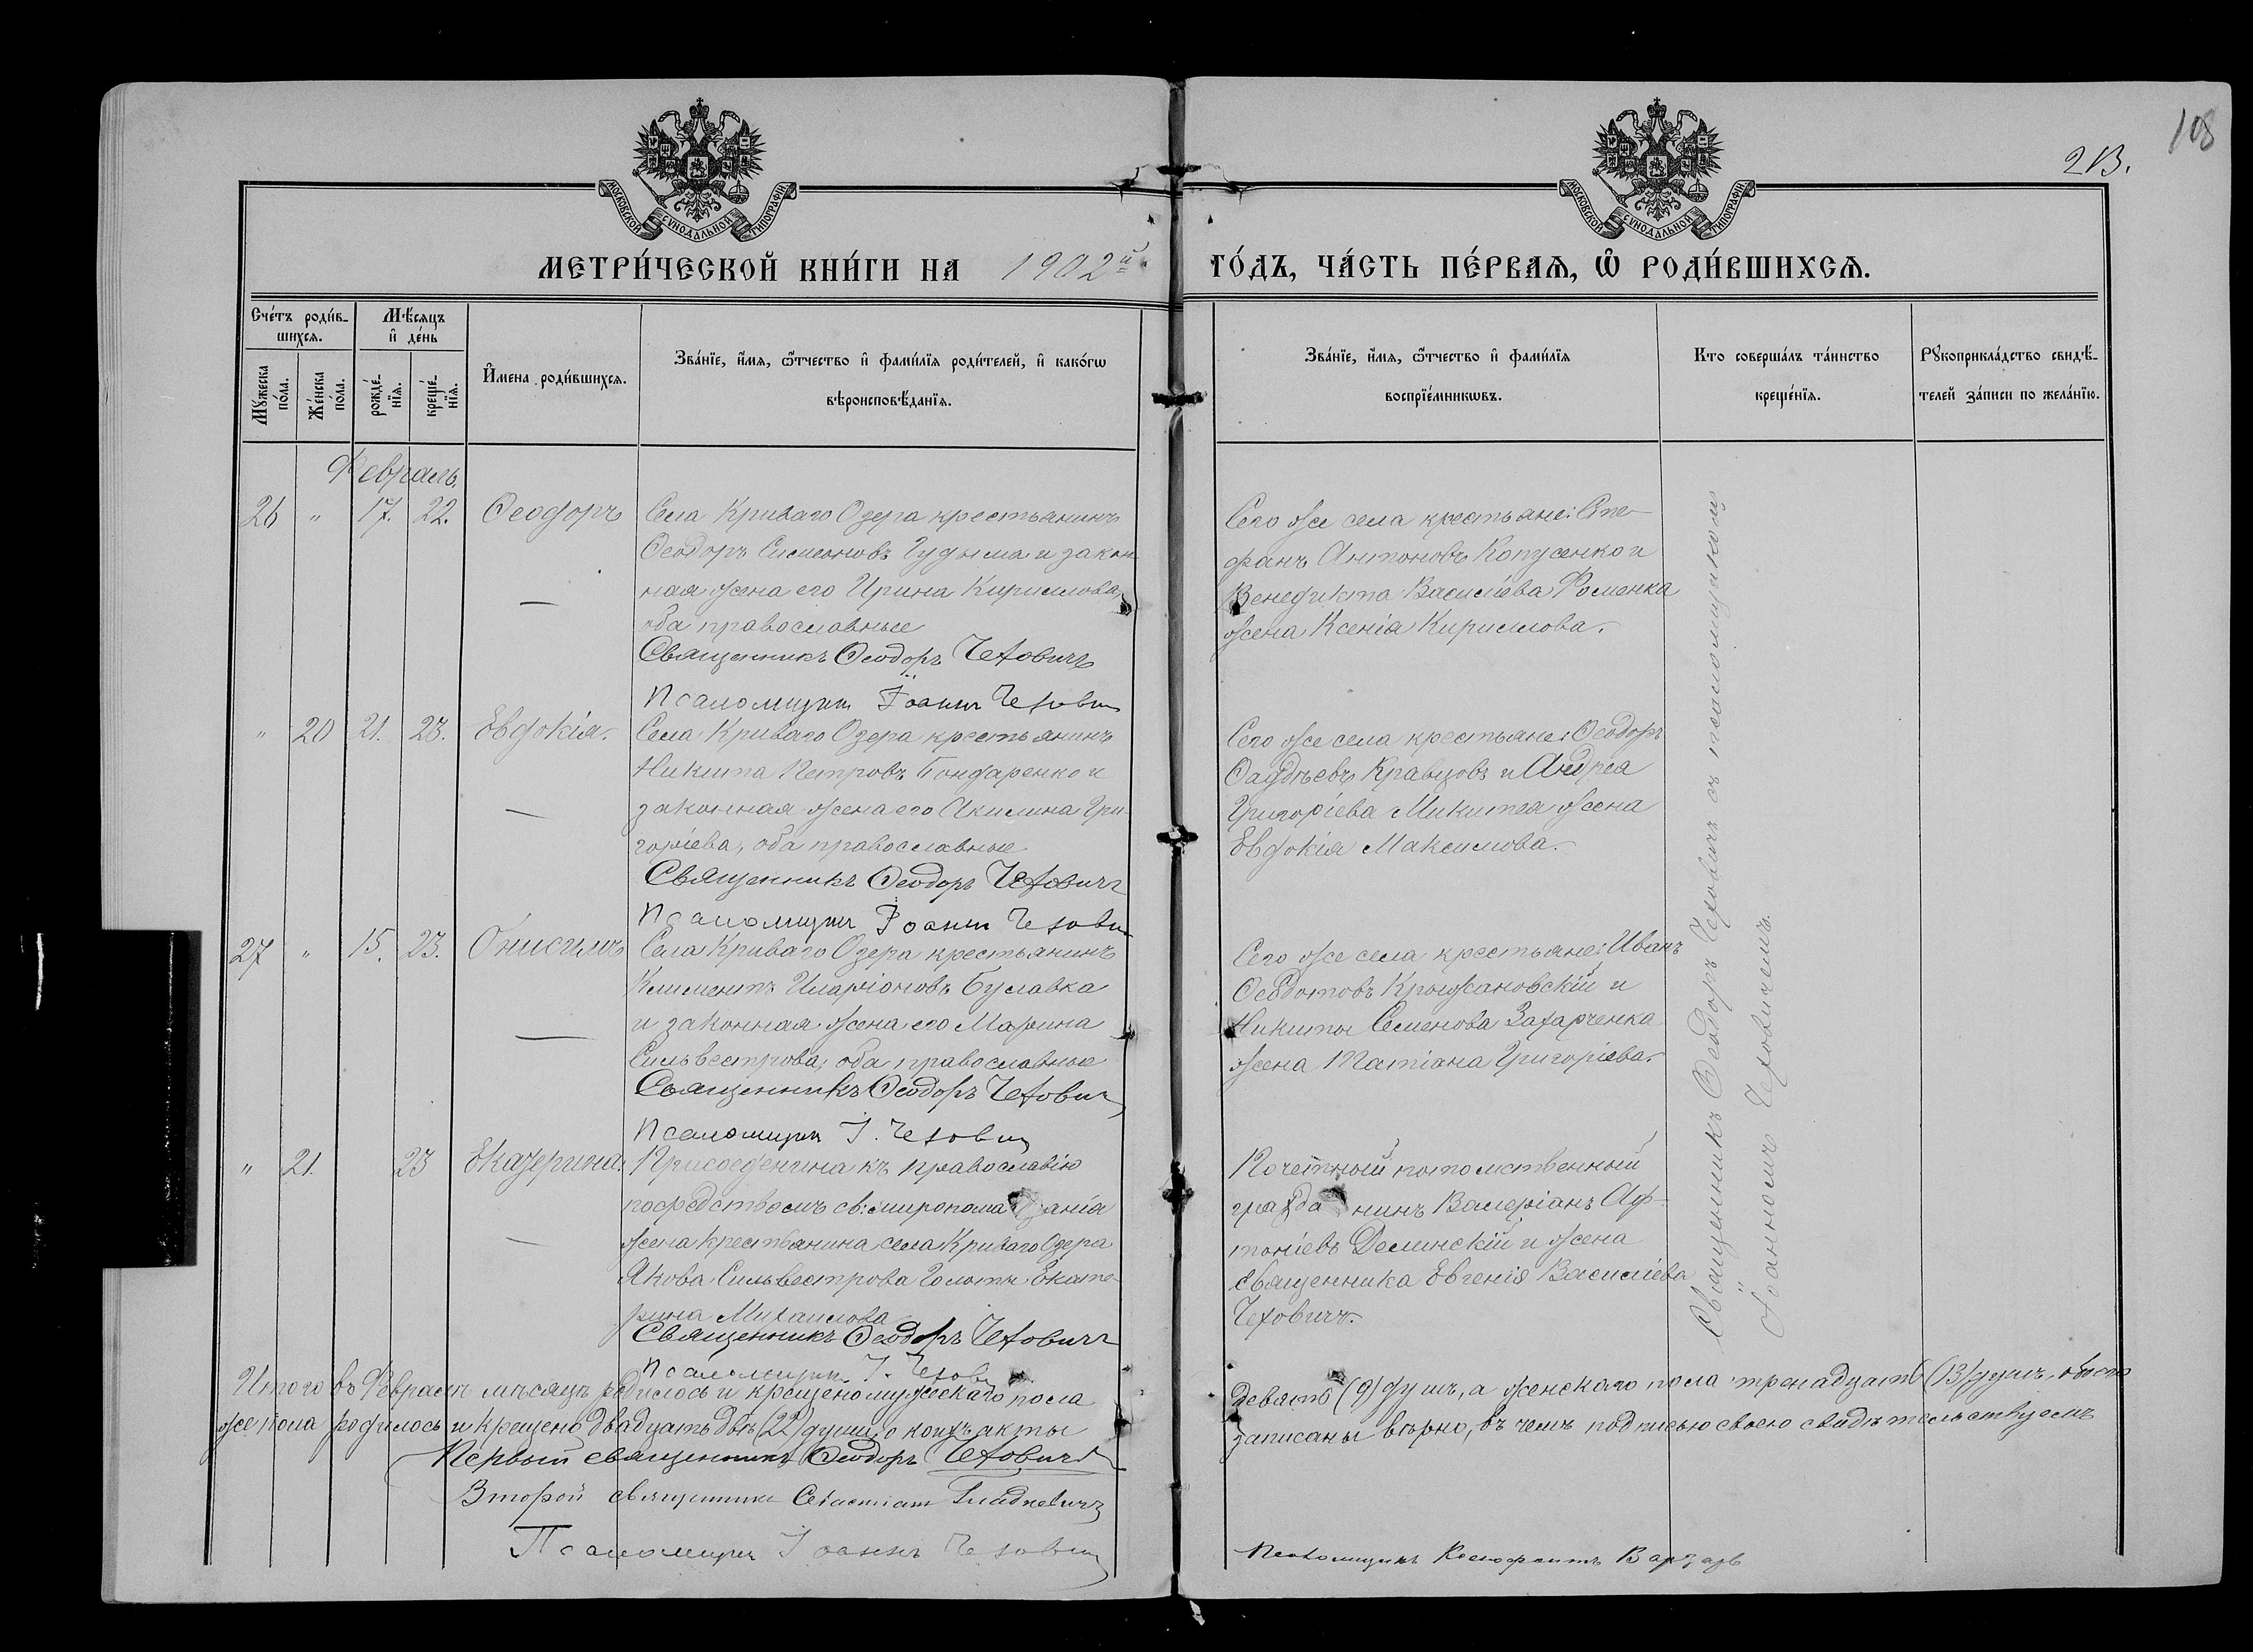 108
213.
МОСКОВСКОЙ СѴНОДАЛЬНОЙ ТИПОГРАФІИ
МОСКОВСКОЙ СѴНОДАЛЬНОЙ ТИПОГРАФІИ
МЕТРИ́ЧЕСКОЙ КНИ́ГИ НА 1902й
ГО́ДЪ, ЧА́СТЬ ПЕ́РВАѦ, Ѽ РОДИ́ВШИХСѦ.
Сче́тъ роди́в-
шихсѧ.
Мꙋ́жеска по́ла.
Же́нска по́ла.
Мѣ́сѧцъ и҆ де́нь
рожде́-нїѧ.
креще́-нїѧ.
И҆мена роди́вшихсѧ.
Зва́нїе, и҆́мѧ, ѻ҆́тчество и҆ фами́лїѧ роди́телей, и҆ како́гѡ
вѣроисповѣ́данїѧ.
Зва́нїе, и҆́мѧ, ѻ҆́тчество и҆ фами́лїѧ
воспрїе́мникѡвъ.
Кто соверша́лъ та́инство
креще́нїѧ.
Рꙋкоприкла́дство свидѣ́-
телей за́писи по жела́нїю.
Февраль.
26 " 17. 22. Ѳеодоръ
Села Криваго Озера крестьянинъ
Ѳеодоръ Симеоновъ Гудыма и закон
ная жена его Ирина Кириллова,
оба православные
Священникъ Ѳеодоръ Чеховичъ
Псаломщикъ Іоаннъ Чехович
Сего же села крестьяне: Сте-
фанъ Антоновъ Копусенко и
Венедикта Василіева Фоменка
жена Ксенія Кириллова.
" 20 21. 23. Евдокія.
Села Криваго Озера крестьянинъ
Никита Петровъ Бондаренко и
законная жена его Акилина Гри-
горіева, оба православные
Священникъ Ѳеодоръ Чеховичъ
Псаломщик Іоанн Чехович
Сего же села крестьяне: Ѳеодоръ
Ѳаддѣевъ Кравцовъ и Андрея
Григоріева Микитея жена
Евдокія Максимова.
27 " 15. 23. Онисимъ
Села Криваго Озера крестьянинъ
Климентъ Иларіоновъ Булавка
и законная жена его Марина
Сильвестрова, оба православные
Священникъ Ѳеодоръ Чехович
Псаломщик І. Чехович
Сего же села крестьяне: Иванъ
Ѳеодотовъ Крыжановскій и
Никиты Семенова Захарченка
жена Татіана Григоріева.
" 21. 23 Екатерина.
Присоединена къ православію
посредствомъ св: миропомазанія
жена крестьянина села Криваго Озера
Якова Сильвестрова Голоты Екате-
рина Михаилова
Священникъ Ѳеодоръ Чеховичъ
Псаломщик І. Чехович
Почетный потомственный
гражданинъ Валеріанъ
Делинскій и жена
священника Евгенія Василіева
Чеховичъ.
Священникъ Ѳеодоръ Чеховичъ съ псаломщикомъ
Іоанномъ Чеховичемъ.
Итого въ Февралѣ мѣсяцѣ родилось и крещено мужескаго пола
девять (9) душъ, а женскаго пола тринадцать (13) душъ, обоего
же пола родилось и крещено двадцать двѣ (22) души, о коихъ акты
записаны вѣрно, въ чемъ подписью своею свидѣтельствуемъ
Первый священникъ Ѳеодоръ Чеховичъ
Второй священникъ Севастіан
Псаломщикъ Іоаннъ Чехович
Псаломщикъ Ксенофонтъ Варзарь